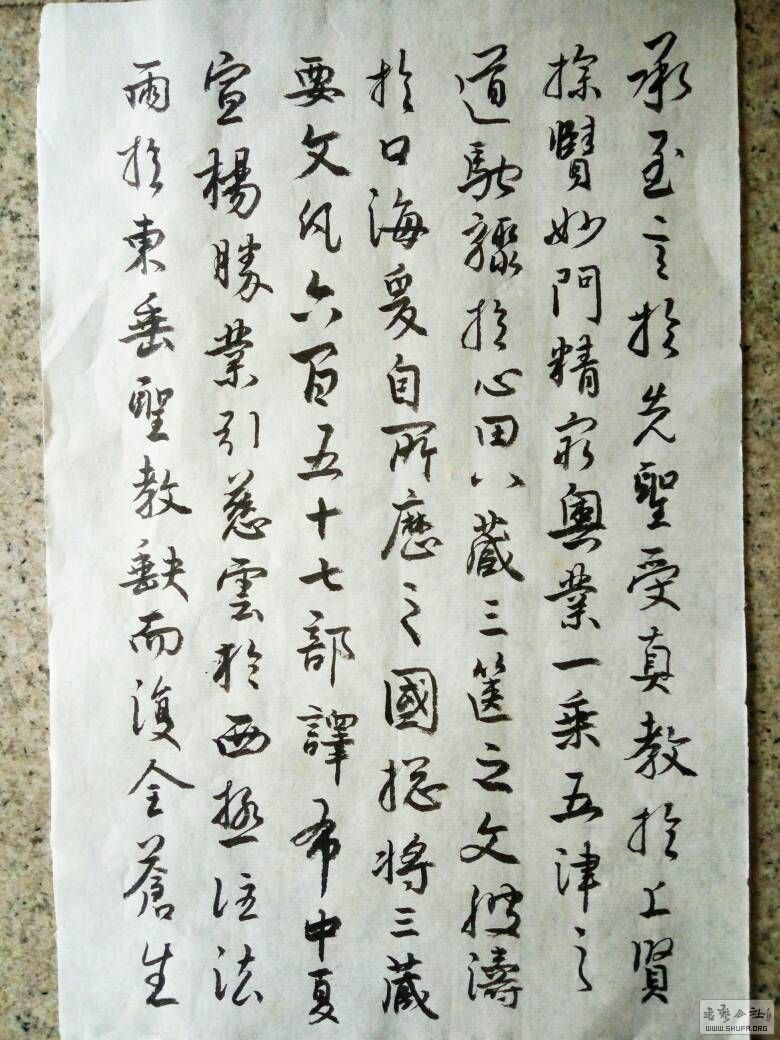 承至言於先聖受真教於上賢
探賢妙門精窮奧業一乘五津之
道馳驟於心田八藏三篋之文波濤
於口海爰自所歷之國揔將三藏
要文凡六百五十七部譯布中夏
宣楊勝業引慈雲於西極注法
雨於東垂聖教缺而復全蒼生
書藝公社
WWW.SHUFA.ORG